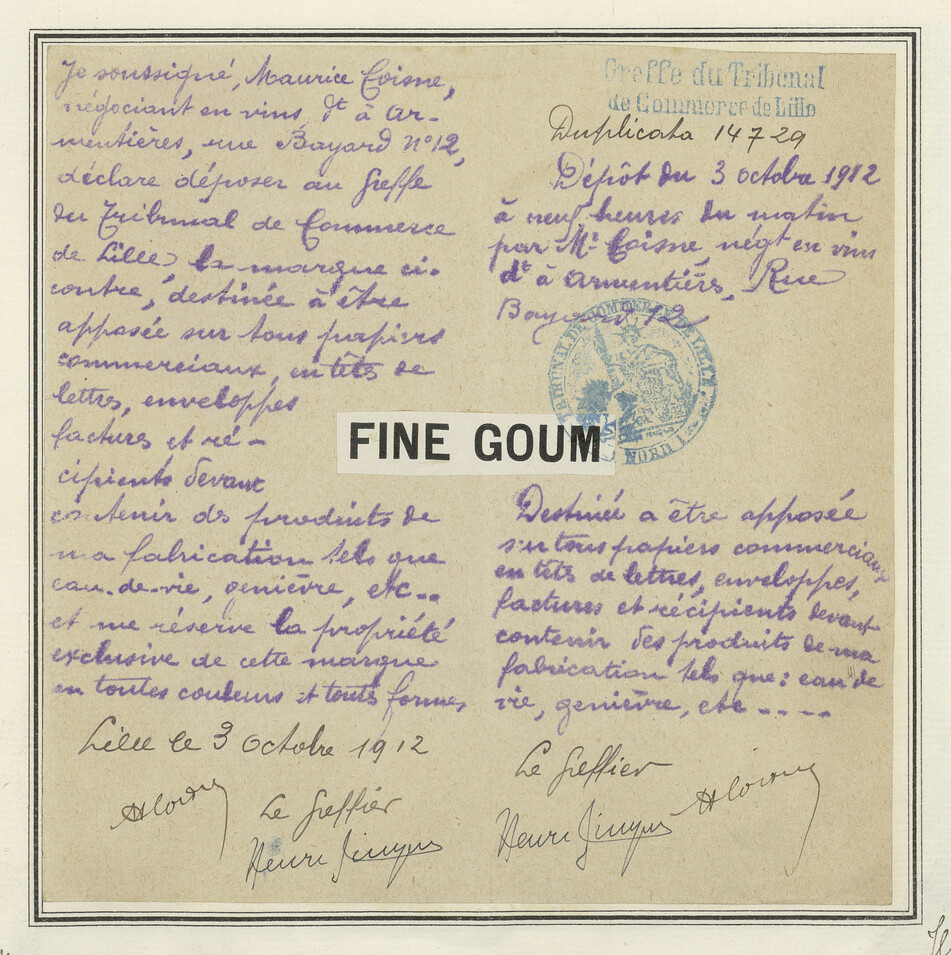 Je soussigné, Maurice Coisne,
négociant en vins, dt à Ar-
mentières, rue Bayard n° 12,
déclare déposer au Greffe
du Tribunal de Commerce
de Lille, la marque ci-
contre, destinée à être
apposée sur tous papiers
commerciaux, en têts de
lettres, enveloppes
factures et ré-
cipients devant
contenir des produits de
ma fabrication tels que
eau-de-vie, genièvre, etc..
et me réserve la propriété
exclusive de cette marque
en toutes couleurs et touts formes
Lille le 3 Octobre 1912
Le Greffier
Henri
FINE GOUM
Greffe du Tribunal
de Commerce de Lille
Duplicata 14729
Dépôt du 3 octobre 1912
à neuf heures du matin
par Mr Coisne, négt en vins
dt à Armentières, Rue
Bayard, 12
TRIBUNAL DE COMMERCE DE LILLE
NORD
Destinée a être apposée
sur tous papiers commerciaux
en têts de lettres, enveloppes,
factures et récipients devant
contenir des produits de ma
fabrication tels que: eau de
vie, genièvre, etc ----
Le Greffier
Henri